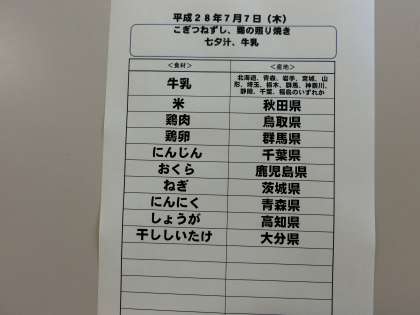 平成28年7月7日(木)
こぎつねずし、鶏の照り焼き
七夕汁、牛乳
<食材> <産地>
牛乳 北海道、青森、岩手、宮城、山形、埼玉、栃木、群馬、神奈川、静岡、千葉、福島のいずれか
米 秋田県
鶏肉 鳥取県
鶏卵 群馬県
にんじん 千葉県
おくら 鹿児島県
ねぎ 茨城県
にんにく 青森県
しょうが 高知県
干ししいたけ 大分県